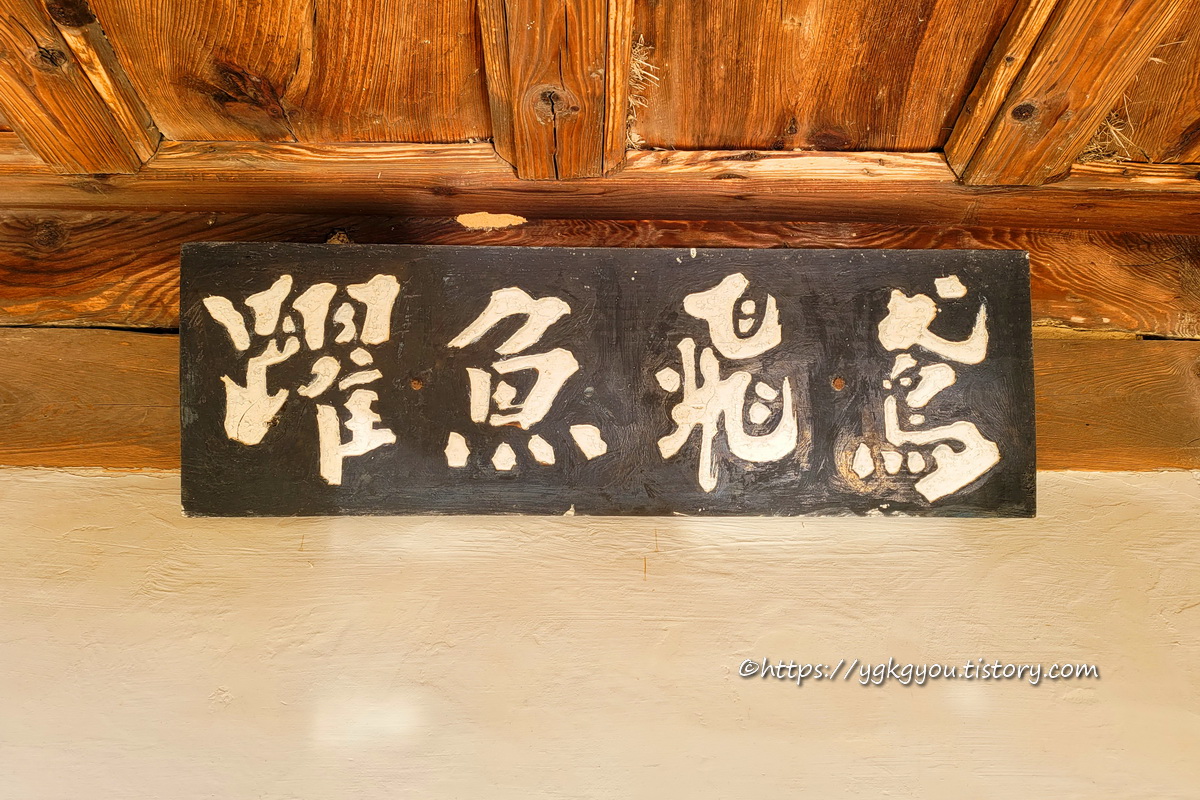 鳶飛魚躍
©https://ygkgyou.tistory.com